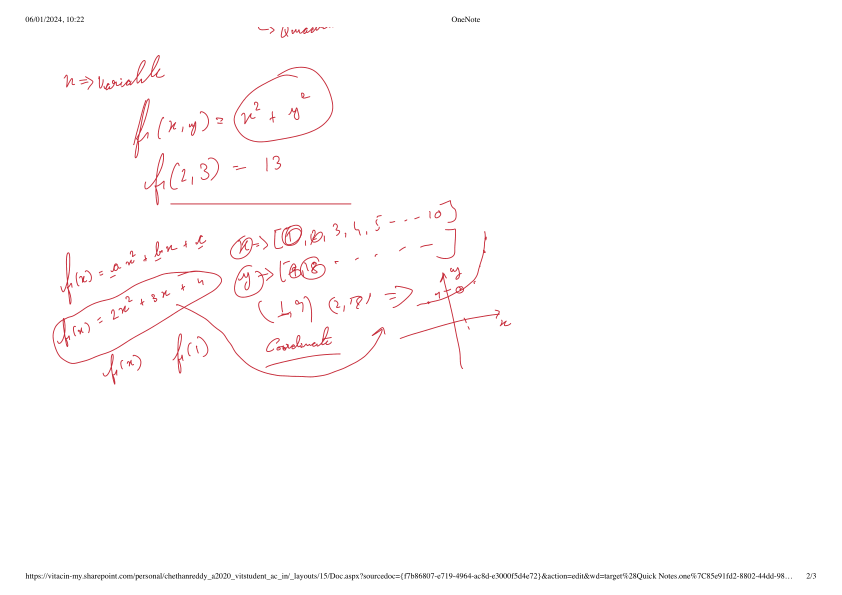 06/01/2024, 10:22
OneNote
x => Variable
f(x, y) = x² + y²
f(2,3) = 13
f(x) = ax² + bx + c
f(x) = 2x² + 3x + 4
f(x) f(1)
x => [1, 2, 3, 4, 5 - - - - 10]
y => [9, 18 - - - - - - ]
(1,9) (2,18) =>
Coordinate
y
x
https://vitacin-my.sharepoint.com/personal/chethanreddy_a2020_vitstudent_ac_in/_layouts/15/Doc.aspx?sourcedoc={f7b86807-e719-4964-ac8d-e3000f5d4e72}&action=edit&wd=target%28Quick Notes.one%7C85e91fd2-8802-44dd-98…
2/3